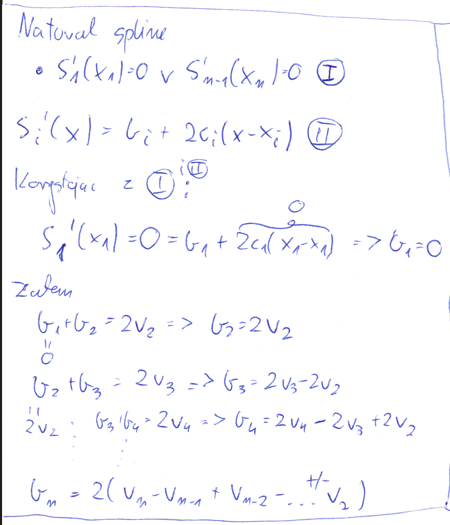 Natural spline
• S₁'(x₁)=0 v S'ₙ₋₁(xₙ)=0 Ⓘ
Sᵢ'(x) = bᵢ + 2cᵢ(x-xᵢ) (II)
Korzystając z Ⓘ i (II) :
0
S₁'(x₁)=0=b₁+2c₁(x₁-x₁) => b₁=0
Zatem
b₁+b₂=2v₂ => b₂=2v₂
"
0
b₂+b₃= 2v₃ => b₃=2v₃-2v₂
"
2v₂ : b₃+b₄=2v₄ => b₄=2v₄-2v₃+2v₂
⋮ ⋮
bₙ=2(vₙ-vₙ₋₁+vₙ₋₂-...+/-v₂)